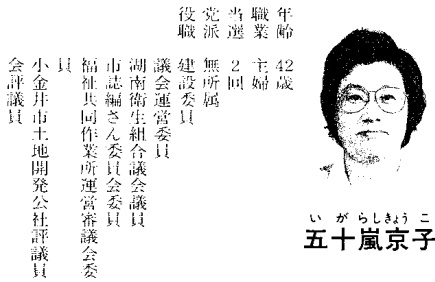 いがらしきょうこ
五十嵐京子
年齢 42歳
職業 主婦
当選 2回
党派 無所属
役職 建設委員
議会運営委員
湖南衛生組合議会議員
市誌編さん委員会委員
福祉共同作業所運営審議会委
員
小金井市土地開発公社評議員
会評議員